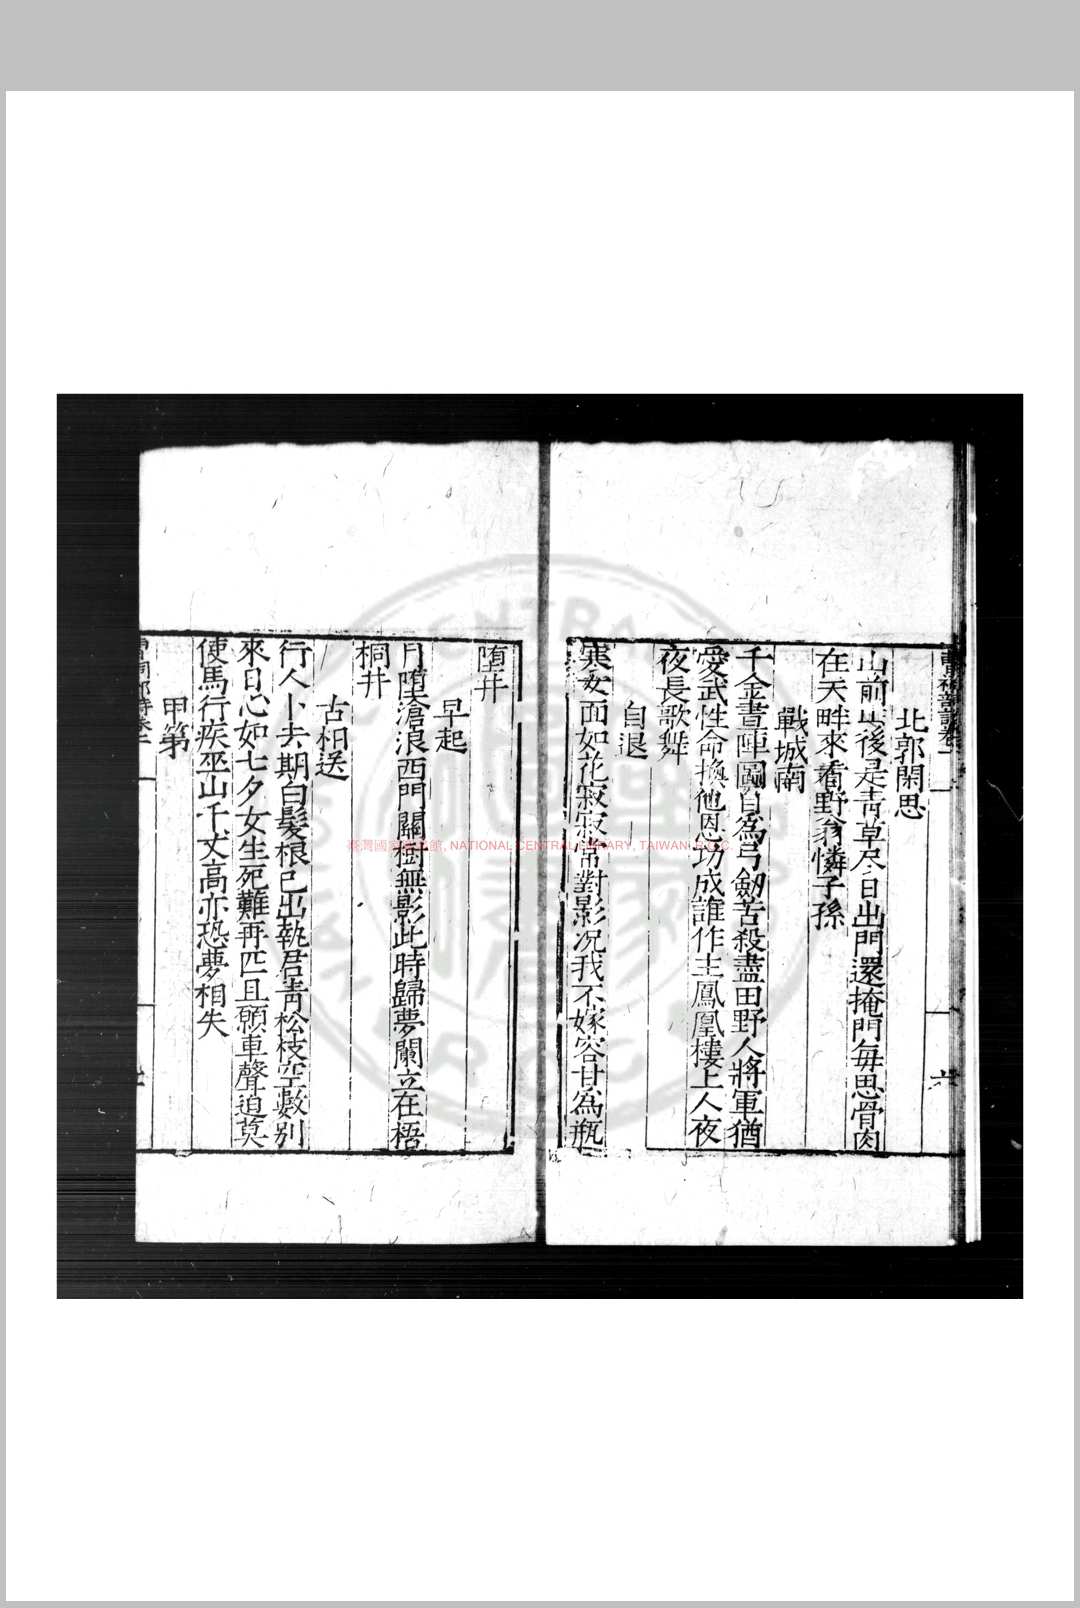 北郭閑思
山前山後是青草尽日出門還掩門每思骨肉
在天畔來看野翁憐子孫
戰城南
千金畫陣圖自為弓劒苦殺盡田野人將軍猶
愛武性命換他恩功成誰作主鳳凰樓上人夜
夜長歌舞
自退
寒女面如花寂寂常對影况我不嫁容甘為瓶
墮井
早起
月墮滄浪西門開樹無影此時歸夢闌立在梧
桐井
古相送
行人卜去期白髮根已出執君青松枝空數別
來日心如七夕女生死難再匹且願車聲迫莫
使馬行疾巫山千丈高亦恐夢相失
甲第
臺灣國家圖書館, NATIONAL CENTRAL LIBRARY, TAIWAN, R.O.C.